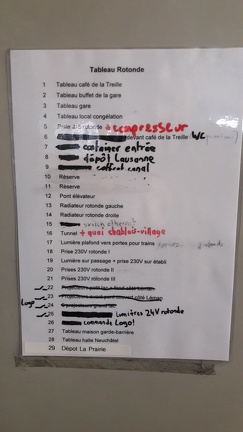 Tableau Rotonde
1 Tableau café de la Treille
2 Tableau buffet de la gare
3 Tableau gare
4 Tableau local congélation
5 rotonde + compresseur
6 devant café de la Treille WC
7 container entrée
8 dépôt Lausanne
9 coffret canal
10 Réserve
11 Réserve
12 Pont élévateur
13 Radiateur rotonde gauche
14 Radiateur rotonde droite
15
16 Tunnel + quai chablais-village
17 Lumière plafond vers portes pour trains
18 Prise 230V rotonde I
19 Lumière sur passage + prise 230V sur établi
20 Prises 230V rotonde II
21 Prises 230V rotonde III
22
23 côté Léman
Logo 24
25 Lumières 24V rotonde
26 commande Logo!
27 Tableau maison garde-barrière
28 Tableau halle Neuchâtel
29 Dépot La Prairie